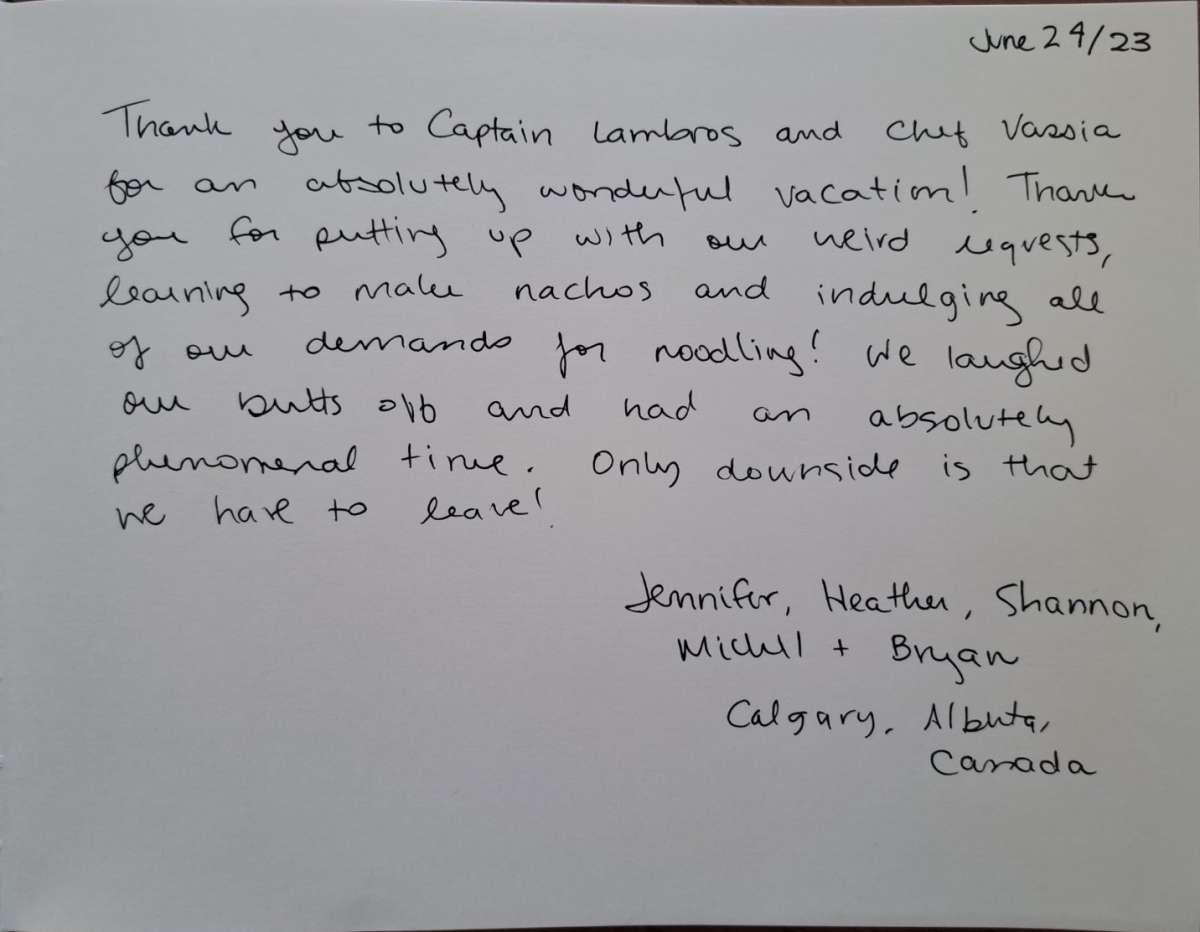 June 24/23
Thank you to Captain Lambros and Chef Vassia
for an absolutely wonderful vacation! Thank
you for putting up with our weird requests,
learning to make nachos and indulging all
of our demands for noodling! We laughed
our butts off and had an absolutely
phenomenal time. Only downside is that
we have to leave!
Jennifer, Heather, Shannon,
Michell + Bryan
Calgary, Alberta,
Canada